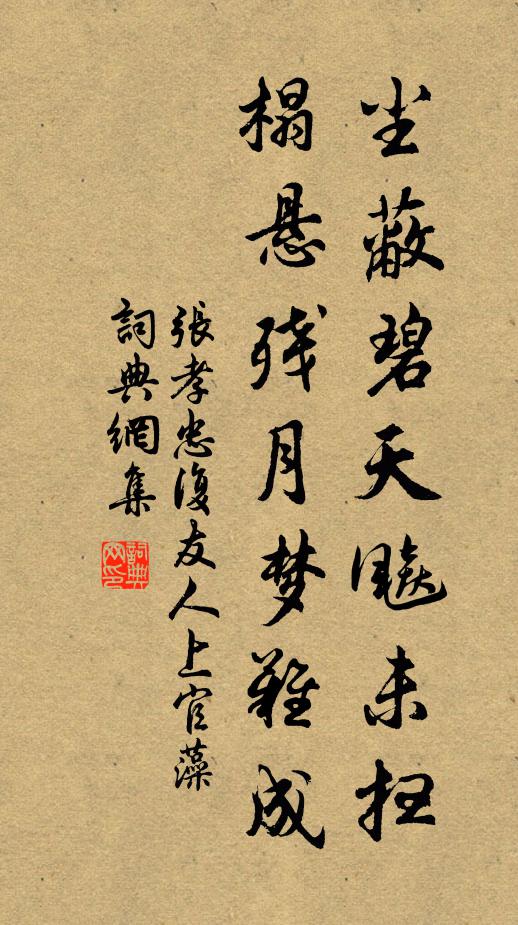 尘蔽碧天飚未扫
榻悬残月梦难成
張孝忠復友人上官藻
詞典網集
詞典網印